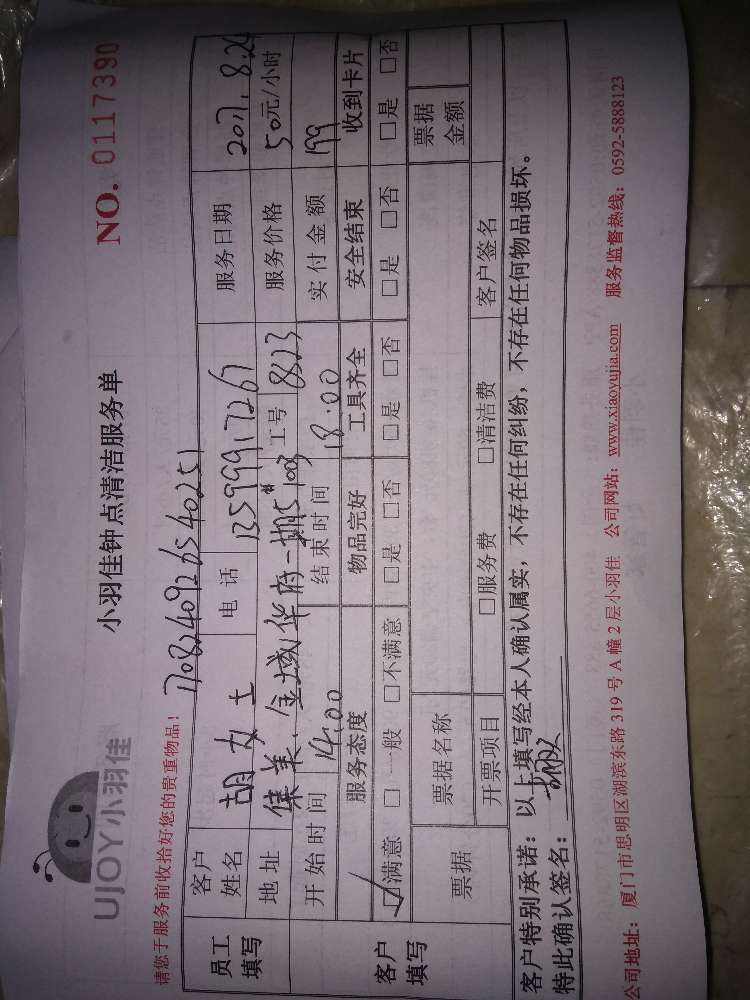 UJOY小羽佳
小羽佳钟点清洁服务单
NO. 0117390
请您于服务前收拾好您的贵重物品!
1708240926540251
员工填写
客户姓名 胡女士 电话 13599917267 服务日期 2017.8.24
地址 集美.金域华府一期5#1003 工号 8523 服务价格 50元/小时
开始时间 14:00 结束时间 18:00 实付金额 199
客户填写
服务态度 物品完好 工具齐全 安全结束 收到卡片
☑满意 □一般 □不满意 □是 □否 □是 □否 □是 □否 □是 □否
票据 票据名称 票据金额
开票项目 □服务费 □清洁费 客户签名
客户特别承诺:以上填写经本人确认属实,不存在任何纠纷,不存在任何物品损坏。
特此确认签名:
公司地址:厦门市思明区湖滨东路319号A幢2层小羽佳 公司网站:www.xiaoyujia.com 服务监督热线:0592-5888123